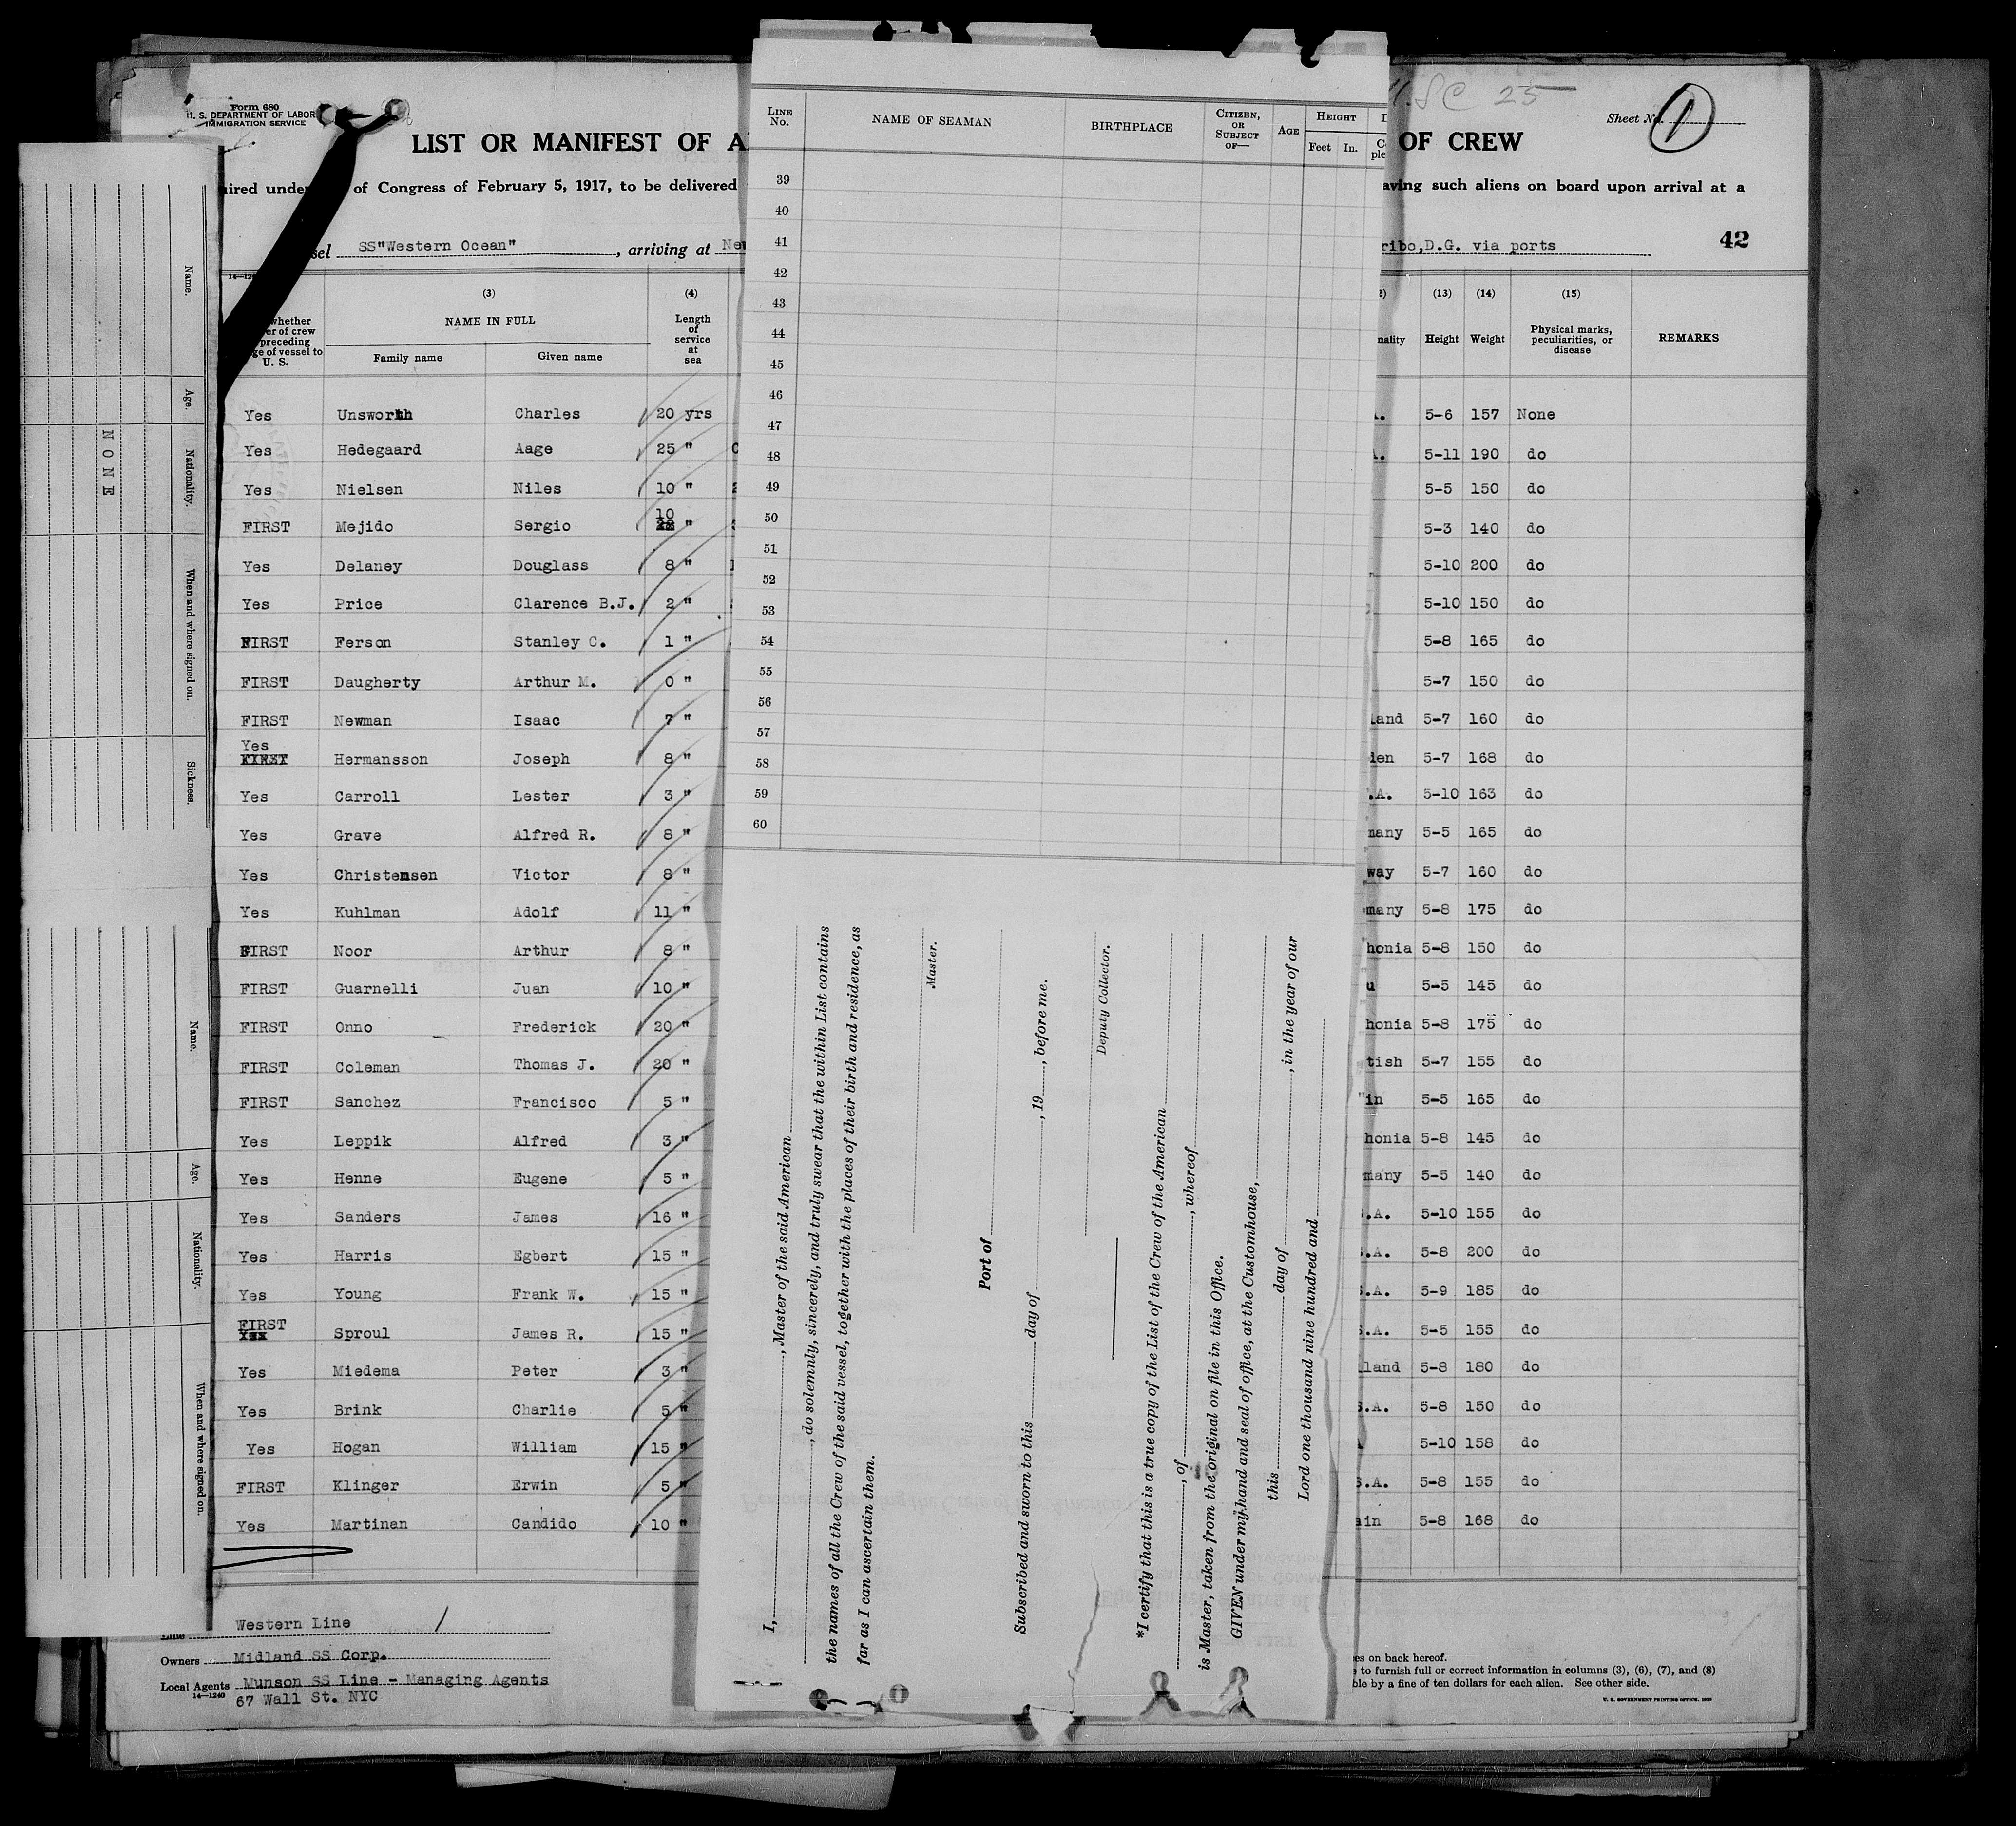 Form 680
U. S. DEPARTMENT OF LABOR
IMMIGRATION SERVICE
LIST OR MANIFEST OF
OF CREW
SC 25
Sheet No. 1
of Congress of February 5, 1917, to be delivered
such aliens on board upon arrival at a
SS"Western Ocean" , arriving at
D.G. via ports
42
whether
of crew
preceding
of vessel to
U. S.
(3)
NAME IN FULL
Family name Given name
(4)
Length
of
service
at
sea
(13)
Height
(14)
Weight
(15)
Physical marks,
peculiarities, or
disease
REMARKS
Yes Unsworth Charles 20 yrs 5-6 157 None
Yes Hedegaard Aage 25 " 5-11 190 do
Yes Nielsen Niles 10 " 5-5 150 do
FIRST Mejido Sergio 10 " 5-3 140 do
Yes Delaney Douglass 8 " 5-10 200 do
Yes Price Clarence B.J. 2 " 5-10 150 do
FIRST Ferson Stanley C. 1 " 5-8 165 do
FIRST Daugherty Arthur M. 0 " 5-7 150 do
FIRST Newman Isaac 7 " land 5-7 160 do
Yes
FIRST Hermansson Joseph 8 " den 5-7 168 do
Yes Carroll Lester 3 " .A. 5-10 163 do
Yes Grave Alfred R. 8 " many 5-5 165 do
Yes Christensen Victor 8 " way 5-7 160 do
Yes Kuhlman Adolf 11 " many 5-8 175 do
FIRST Noor Arthur 8 " honia 5-8 150 do
FIRST Guarnelli Juan 10 " u 5-5 145 do
FIRST Onno Frederick 20 " honia 5-8 175 do
FIRST Coleman Thomas J. 20 " tish 5-7 155 do
FIRST Sanchez Francisco 5 " in 5-5 165 do
Yes Leppik Alfred 3 " honia 5-8 145 do
Yes Henne Eugene 5 " many 5-5 140 do
Yes Sanders James 16 " .A. 5-10 155 do
Yes Harris Egbert 15 " .A. 5-8 200 do
Yes Young Frank W. 15 " S.A. 5-9 185 do
FIRST
Yes Sproul James R. 15 " S.A. 5-5 155 do
Yes Miedema Peter 3 " land 5-8 180 do
Yes Brink Charlie 5 " S.A. 5-8 150 do
Yes Hogan William 15 " 5-10 158 do
FIRST Klinger Erwin 5 " S.A. 5-8 155 do
Yes Martinan Candido 10 " ain 5-8 168 do
Line Western Line
Owners Midland SS Corp.
Local Agents Munson SS Line - Managing Agents
14—1240
67 Wall St. NYC
on back hereof.
to furnish full or correct information in columns (3), (6), (7), and (8)
by a fine of ten dollars for each alien. See other side.
U. S. GOVERNMENT PRINTING OFFICE
LINE
No.
NAME OF SEAMAN
BIRTHPLACE
CITIZEN,
OR
SUBJECT
OF—
AGE
HEIGHT
Feet In.
39
40
41
42
43
44
45
46
47
48
49
50
51
52
53
54
55
56
57
58
59
60
I, , Master of the said American
, do solemnly, sincerely, and truly swear that the within List contains
the names of all the Crew of the said vessel, together with the places of their birth and residence, as
far as I can ascertain them.
Master.
Port of
Subscribed and sworn to this day of , 19 , before me.
Deputy Collector.
*I certify that this is a true copy of the List of the Crew of the American
, of , whereof
is Master, taken from the original on file in this Office.
GIVEN under my hand and seal of office, at the Customhouse,
this day of , in the year of our
Lord one thousand nine hundred and
Name.
Age.
Nationality.
When and where signed on.
Sickness.
NONE
Name.
Age.
Nationality.
When and where signed on.